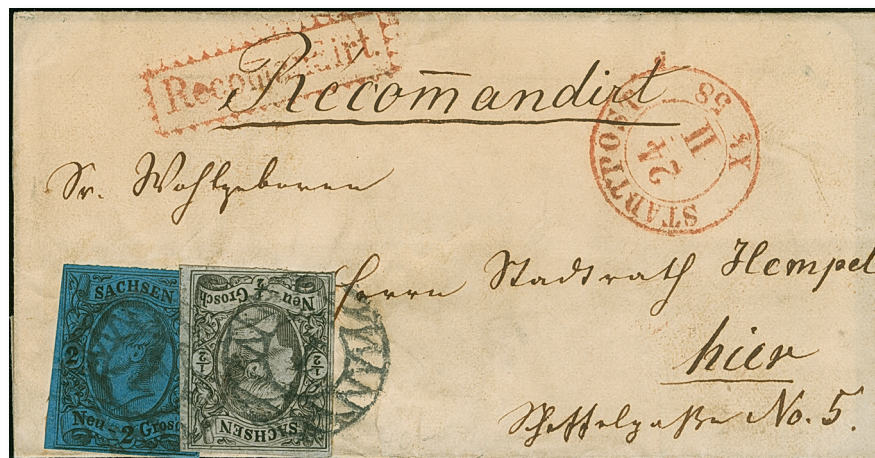 Recommandirt.
Recom̄andirt
STADTPOST
24
II
58
Sr. Wohlgeboren
Herrn Stadtrath Hempel
hier
Scheffelgaße No. 5.
SACHSEN
2
Neu - 2 Grosch
Neu ½ Grosch
½ ½
SACHSEN